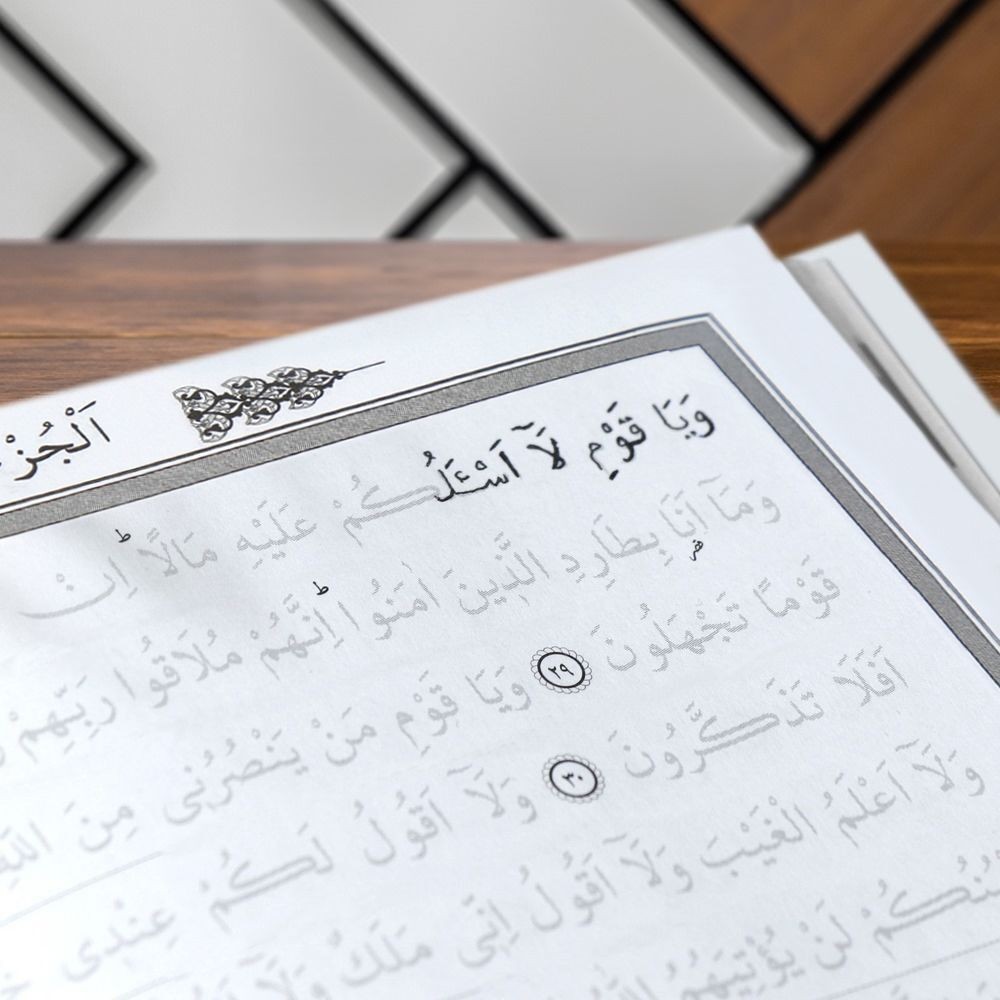 اَلْجُزْ
وَيَا قَوْمِ لَآ اَسْـَٔلُكُمْ عَلَيْهِ مَالًا اِنْ
وَمَآ اَنَا بِطَارِدِ الَّذٖينَ اٰمَنُوا اِنَّهُمْ مُلَاقُوا رَبِّهِمْ
قَوْمًا تَجْهَلُونَ ٢٩ وَيَا قَوْمِ مَنْ يَنْصُرُنٖى مِنَ
اَفَلَا تَذَكَّرُونَ ٣٠ وَلَآ اَقُولُ لَكُمْ عِنْدٖى
وَلَآ اَعْلَمُ الْغَيْبَ وَلَآ اَقُولُ اِنّٖى مَلَكٌ وَلَآ
لَنْ يُؤْتِيَهُمُ